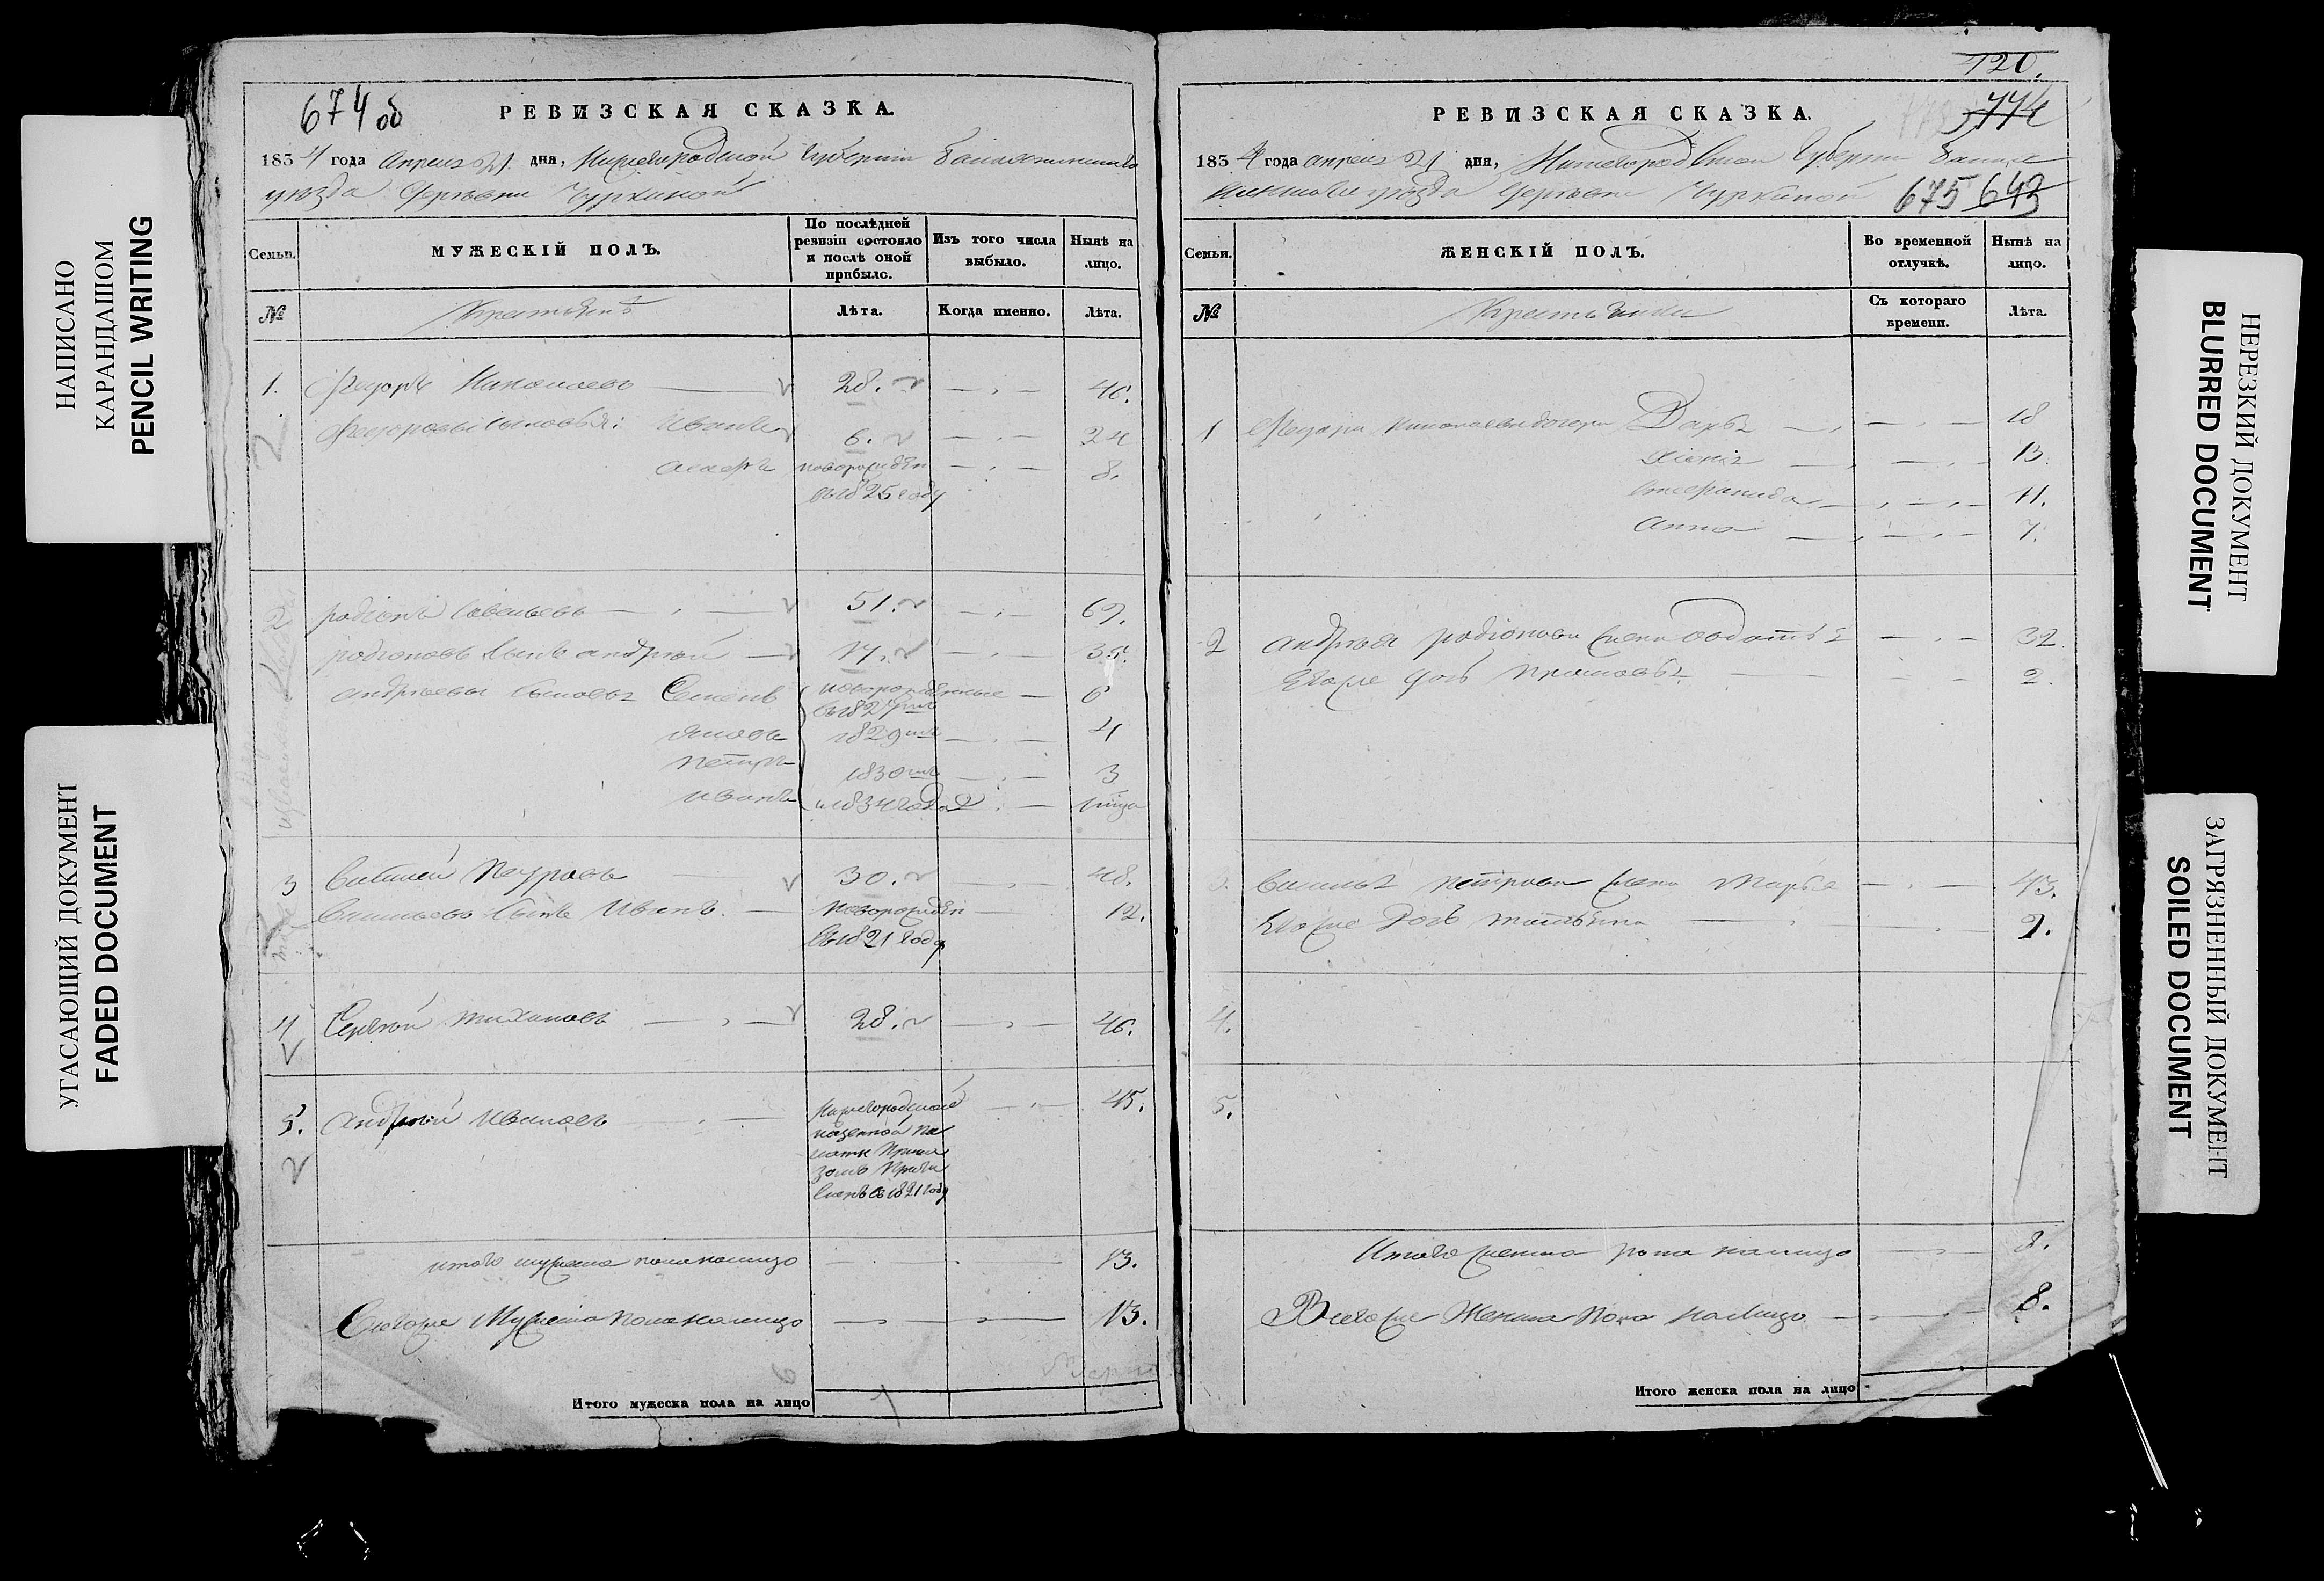 НАПИСАНО
КАРАНДАШОМ
PENCIL WRITING
УГАСАЮЩИЙ ДОКУМЕНТ
FADED DOCUMENT
674 об
РЕВИЗСКАЯ СКАЗКА.
1834 года апреля 21 дня, Нижегородской Губернии Балахнинскаго
уезда Деревни Чуркиной
Семьи.
МУЖЕСКІЙ ПОЛЪ.
По послѣдней
ревизіи состояло
и послѣ оной
прибыло.
Изъ того числа
выбыло.
Нынѣ на
лицо.
№
Крестьянъ
Лѣта.
Когда именно.
Лѣта.
1. Федоръ Николаевъ 28. 46.
Федоровы сыновья: Иванъ 6. 24
новорожден 8.
въ 1825 году
2 родіонъ Савельевъ 51. 69.
родіоновъ сынъ андрей 17. 35.
андреевы сыновья Семенъ новорожденные 6
въ 1827
яковъ 1829 4
петръ 1830 3
иванъ и 1834 года
3 Василей Петровъ 30. 48.
Васильевъ сынъ Иванъ. Новорожден 12.
въ 1821 году
4 Сергей тихановъ 28. 46.
5. андрей Ивановъ Нижегородской 45.
казенной па
латы
въ 1821 году
итого мужеска пола налицо 13.
Всегоже Мужеска пола налицо 13.
Итого мужеска пола на лицо
120.
774
РЕВИЗСКАЯ СКАЗКА.
1834 года апреля 21 дня, Нижегородской Губернии Балах
нинскаго уезда Деревни Чуркиной 675 643
Семьи.
ЖЕНСКІЙ ПОЛЪ.
Во временной
отлучкѣ.
Нынѣ на
лицо.
№
Крестьянки
Съ котораго
времени.
Лѣта.
1 Федора Николаева дочери Дарья 18
13.
Степанида 11.
анна 7.
2 андрея родіонова жена 32.
Егоже дочь 2.
3. Василья петрова жена Марья 43.
Егоже Дочь 9.
4.
5.
Итого женска пола налицо 8.
Всегоже Женска Пола налицо 8.
Итого женска пола на лицо
НЕРЕЗКИЙ ДОКУМЕНТ
BLURRED DOCUMENT
ЗАГРЯЗНЕННЫЙ ДОКУМЕНТ
SOILED DOCUMENT